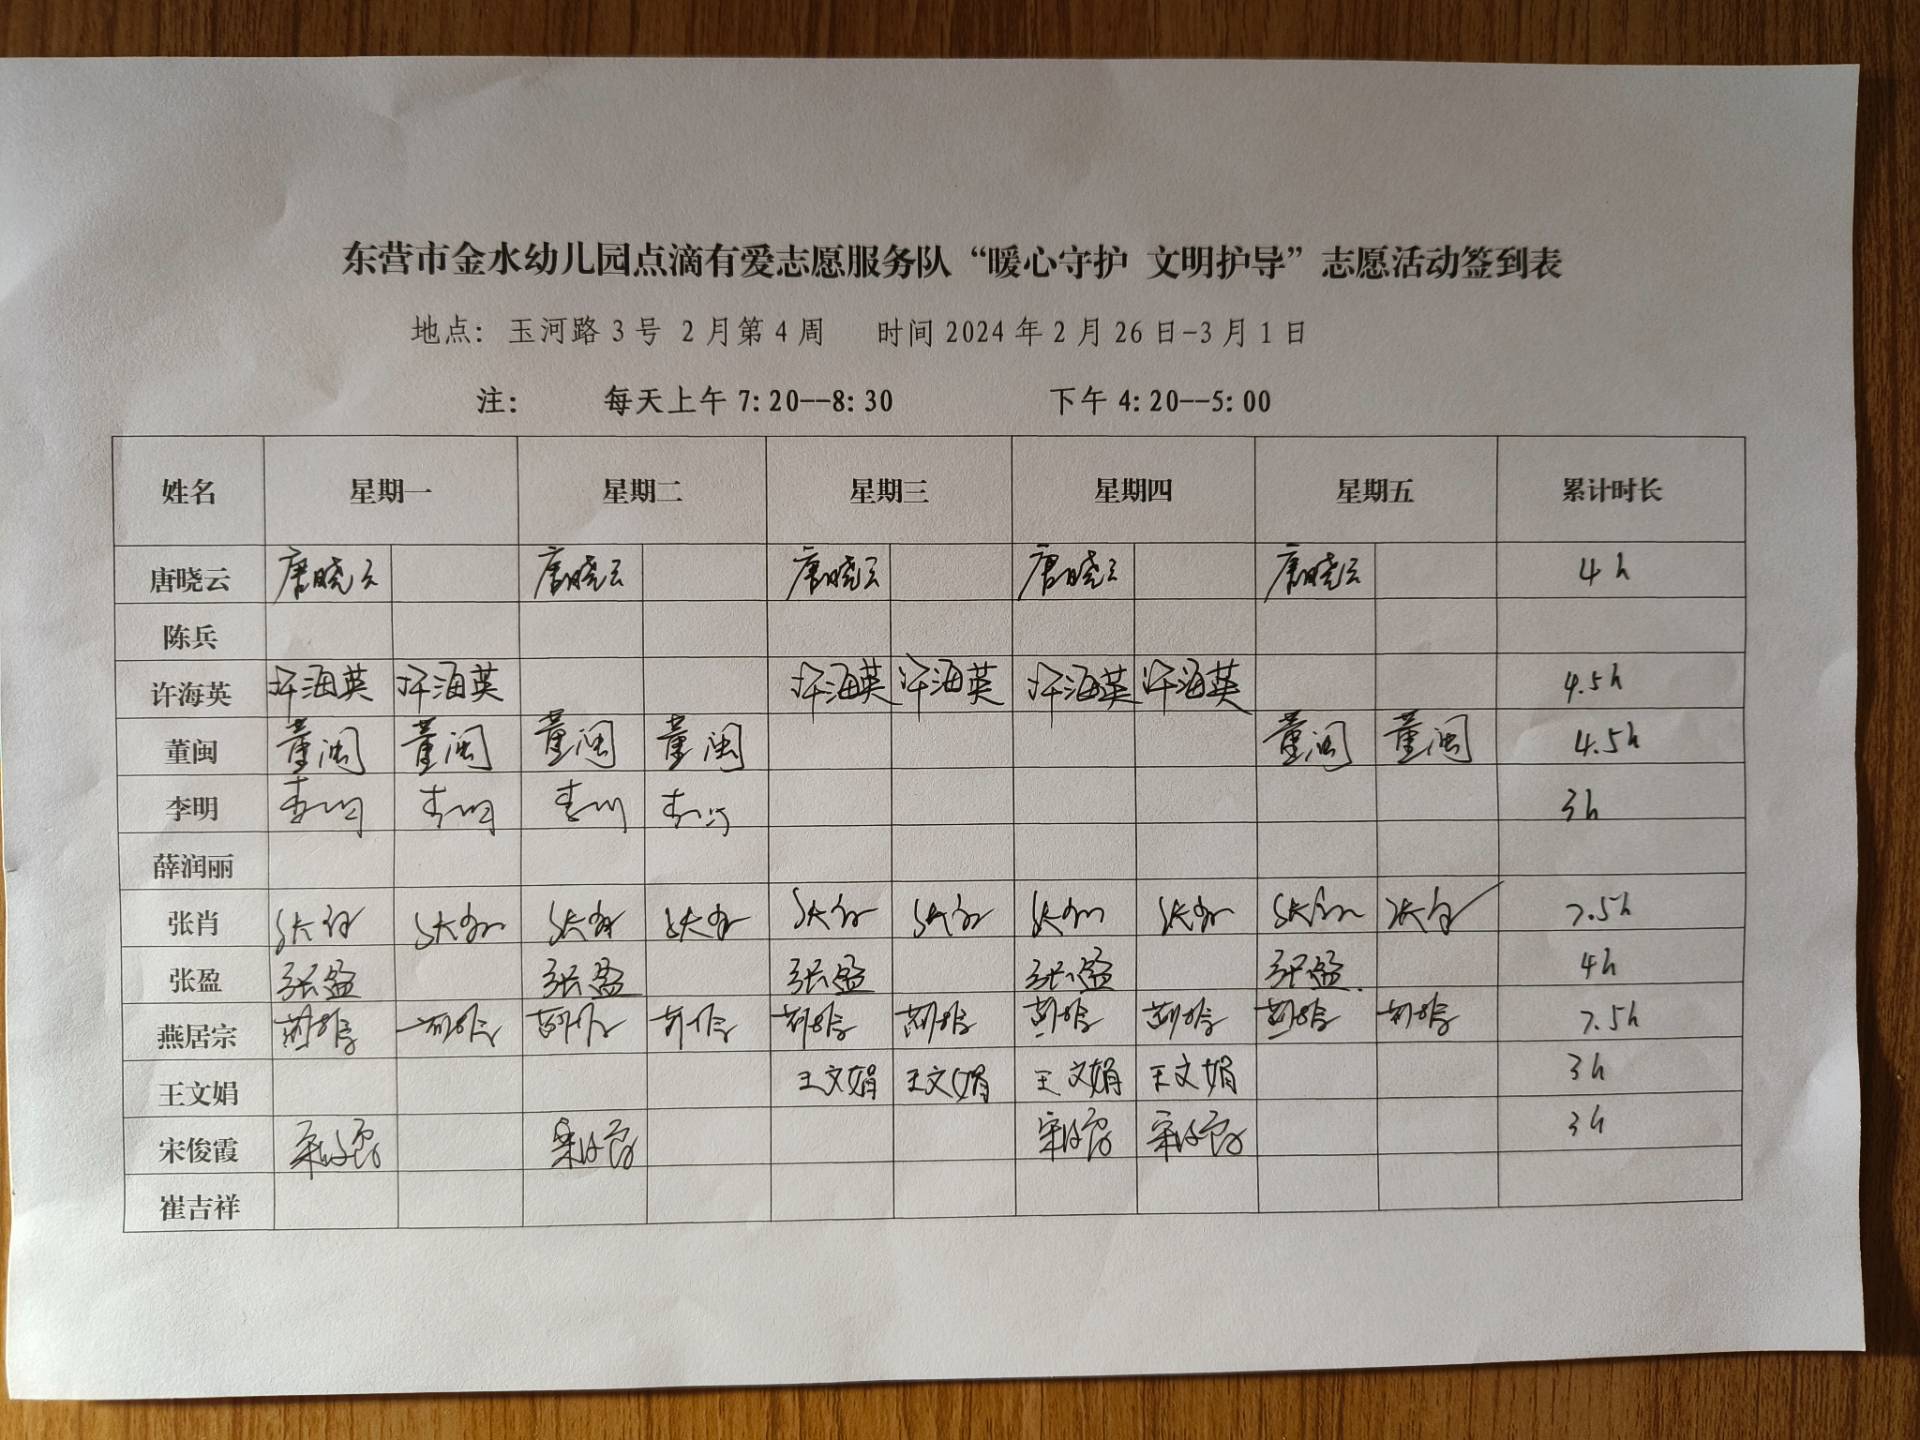 东营市金水幼儿园点滴有爱志愿服务队“暖心守护 文明护导”志愿活动签到表
地点：玉河路3号 2月第4周 时间2024年2月26日-3月1日
注： 每天上午7:20--8:30 下午4:20--5:00
姓名 星期一 星期二 星期三 星期四 星期五 累计时长
唐晓云 唐晓云 唐晓云 唐晓云 唐晓云 唐晓云 4h
陈兵
许海英 许海英 许海英 许海英 许海英 许海英 许海英 4.5h
董闽 董闽 董闽 董闽 董闽 董闽 董闽 4.5h
李明 李明 李明 李明 李明 3h
薛润丽
张肖 张肖 张肖 张肖 张肖 张肖 张肖 张肖 张肖 张肖 张肖 7.5h
张盈 张盈 张盈 张盈 张盈 张盈 4h
燕居宗 7.5h
王文娟 王文娟 王文娟 王文娟 王文娟 3h
宋俊霞 宋俊霞 宋俊霞 宋俊霞 宋俊霞 3h
崔吉祥